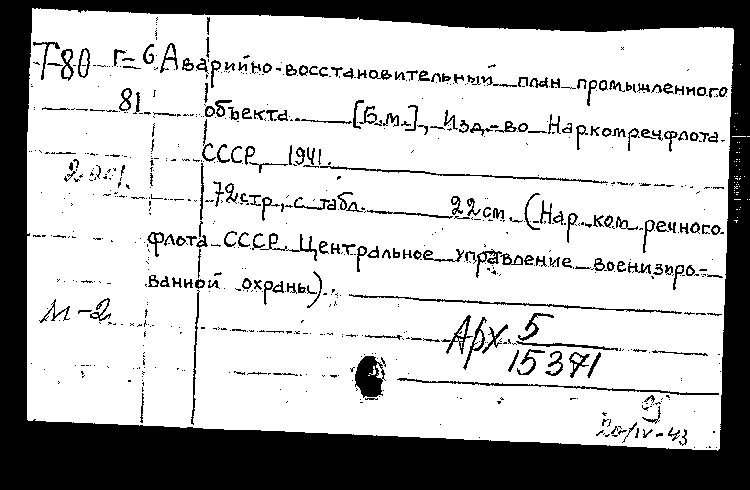 Т-80 г=6 Аварийно-восстановительный план промышленного
81 объекта [Б.м.], Изд-во Наркомречфлота
СССР, 1941.
2 экз.
72стр., с табл. 22см. (Нар. ком. речного
флота СССР. Центральное управление военизиро-
ванной охраны).
М-2
Арх 5
15371
20/IV-43